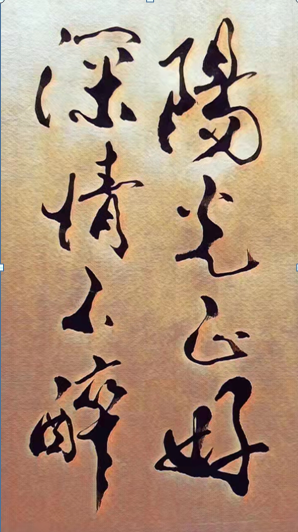 陽光正好
深情人醉